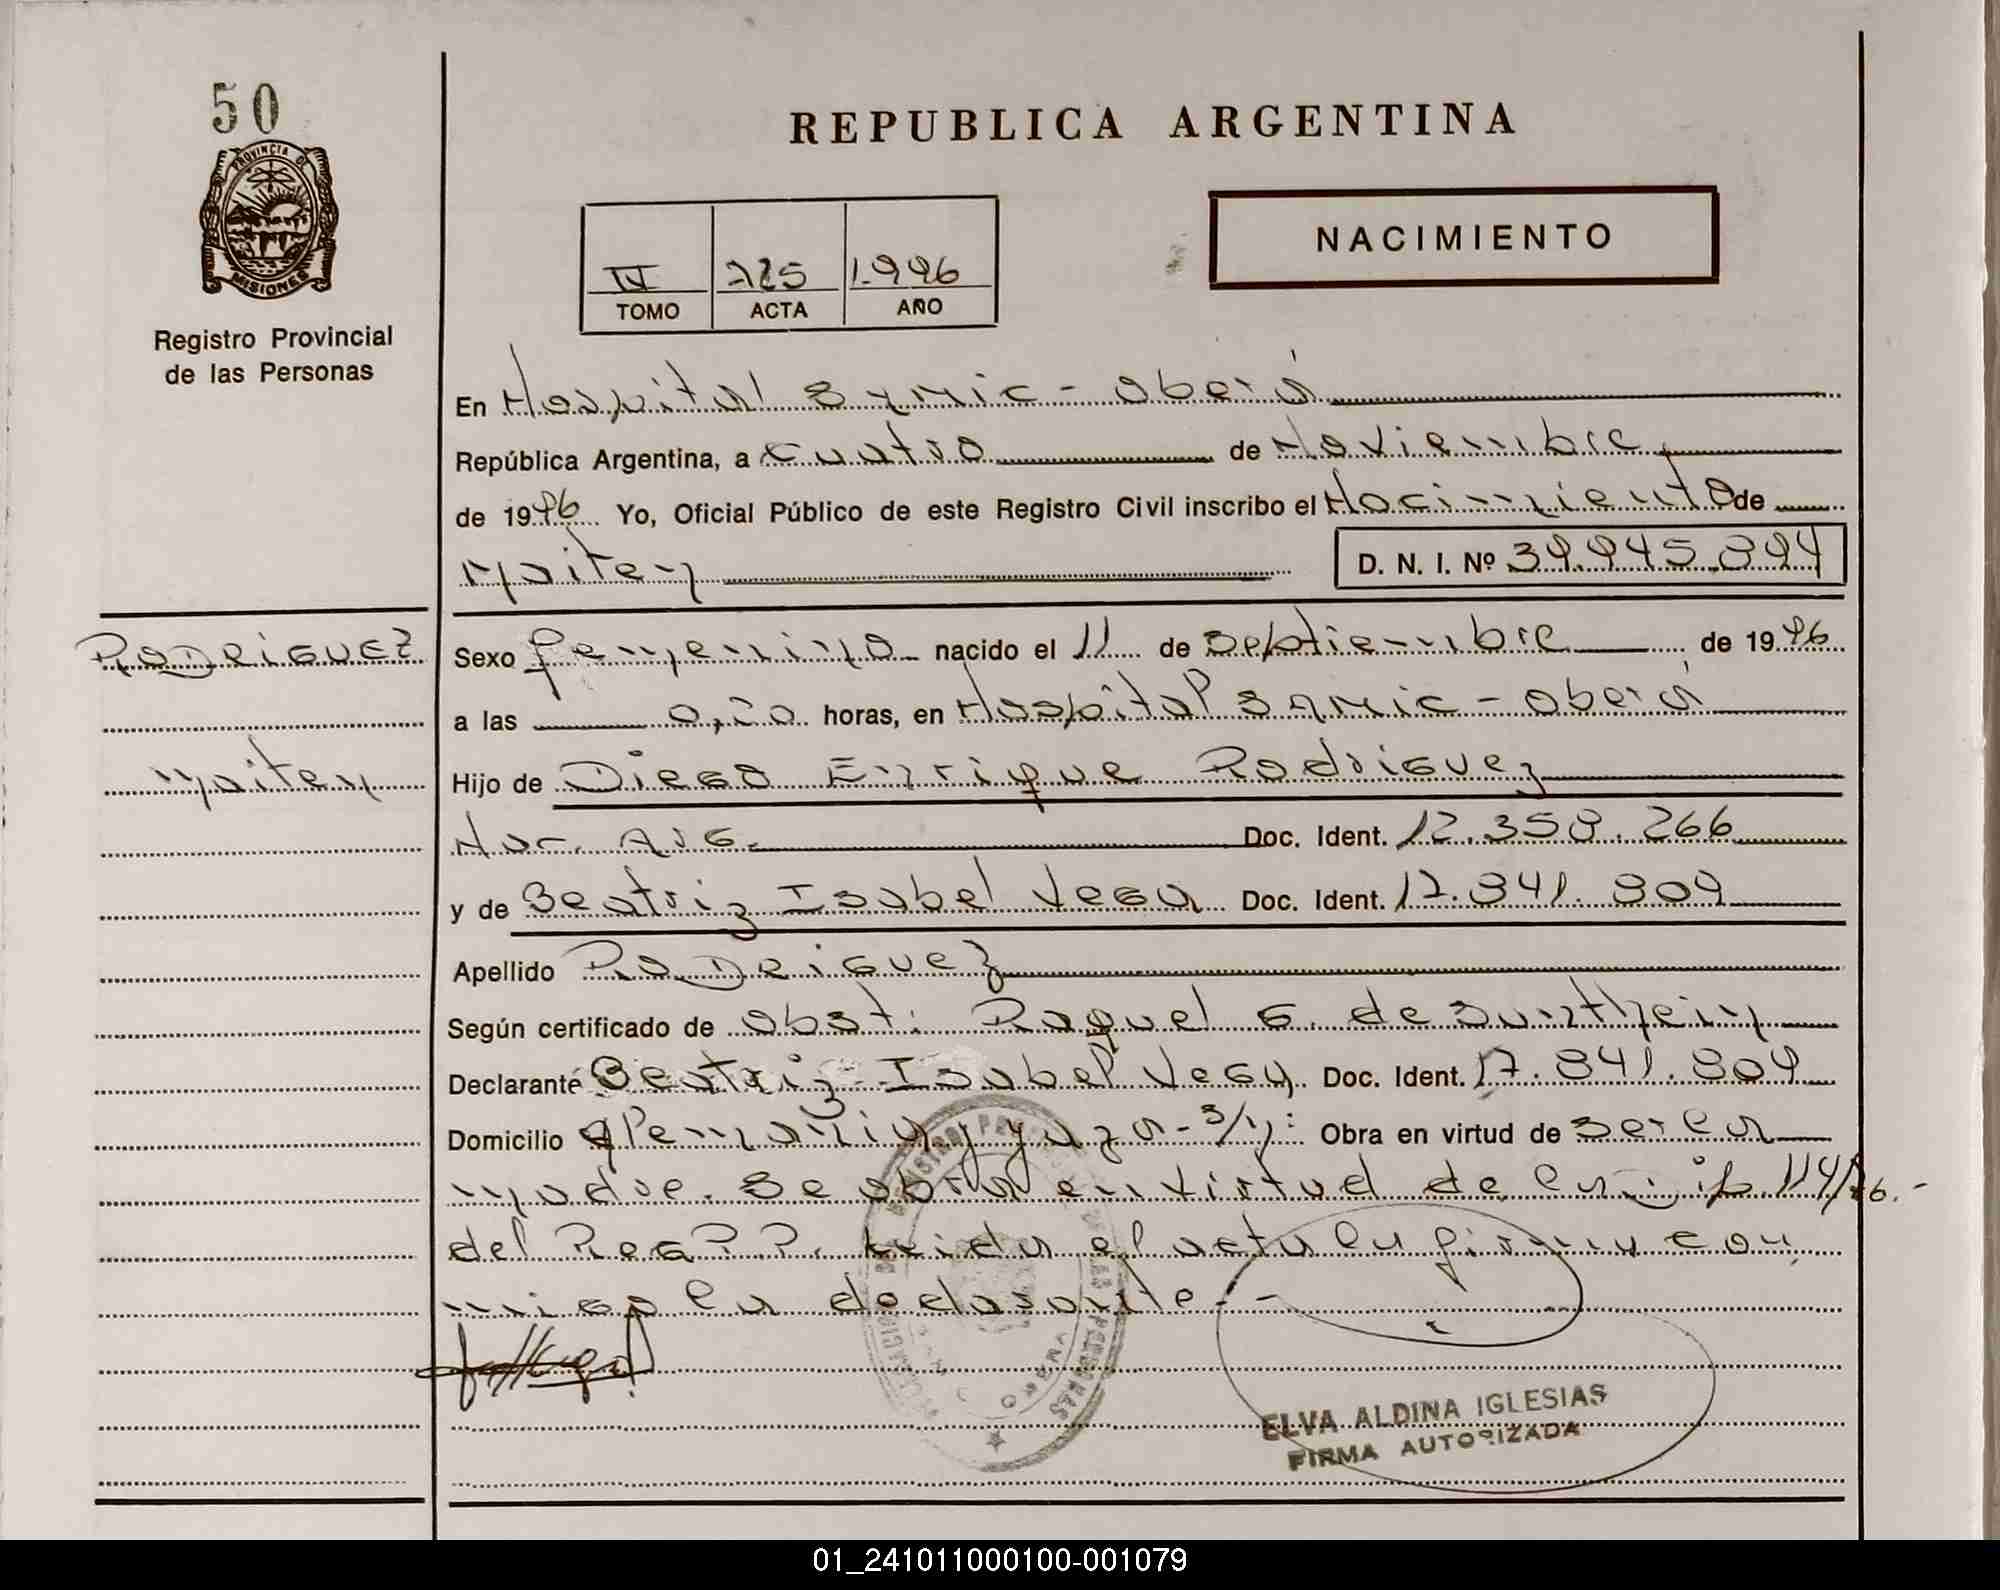 50
REPUBLICA ARGENTINA
PROVINCIA DE
MISIONES
NACIMIENTO
IV 725 1.996
TOMO ACTA AÑO
Registro Provincial
de las Personas
En Hospital Samic - oberá
República Argentina, a cuatro de Noviembre
de 1996 Yo, Oficial Público de este Registro Civil inscribo el Nacimiento de
Maiten D. N. I. Nº 39.945.894
RoDriGuez Sexo femenino nacido el 11 de septiembre de 1996
a las 0,20 horas, en Hospital Samic - oberá
Maiten Hijo de DieGo Enrique RodriGuez
Nac. ArG. Doc. Ident. 12.358.266
y de Beatriz Isabel VeGa Doc. Ident. 17.841.809
Apellido RoDriGuez
Según certificado de obst. Raquel G. de
Declarante Beatriz Isabel VeGa Doc. Ident. 17.841.809
Domicilio Obra en virtud de ser la
madre. Se obra en virtud de la 114/96.-
del Leida el acta la firma con
migo la declarante.-
ELVA ALDINA IGLESIAS
FIRMA AUTORIZADA
01_241011000100-001079